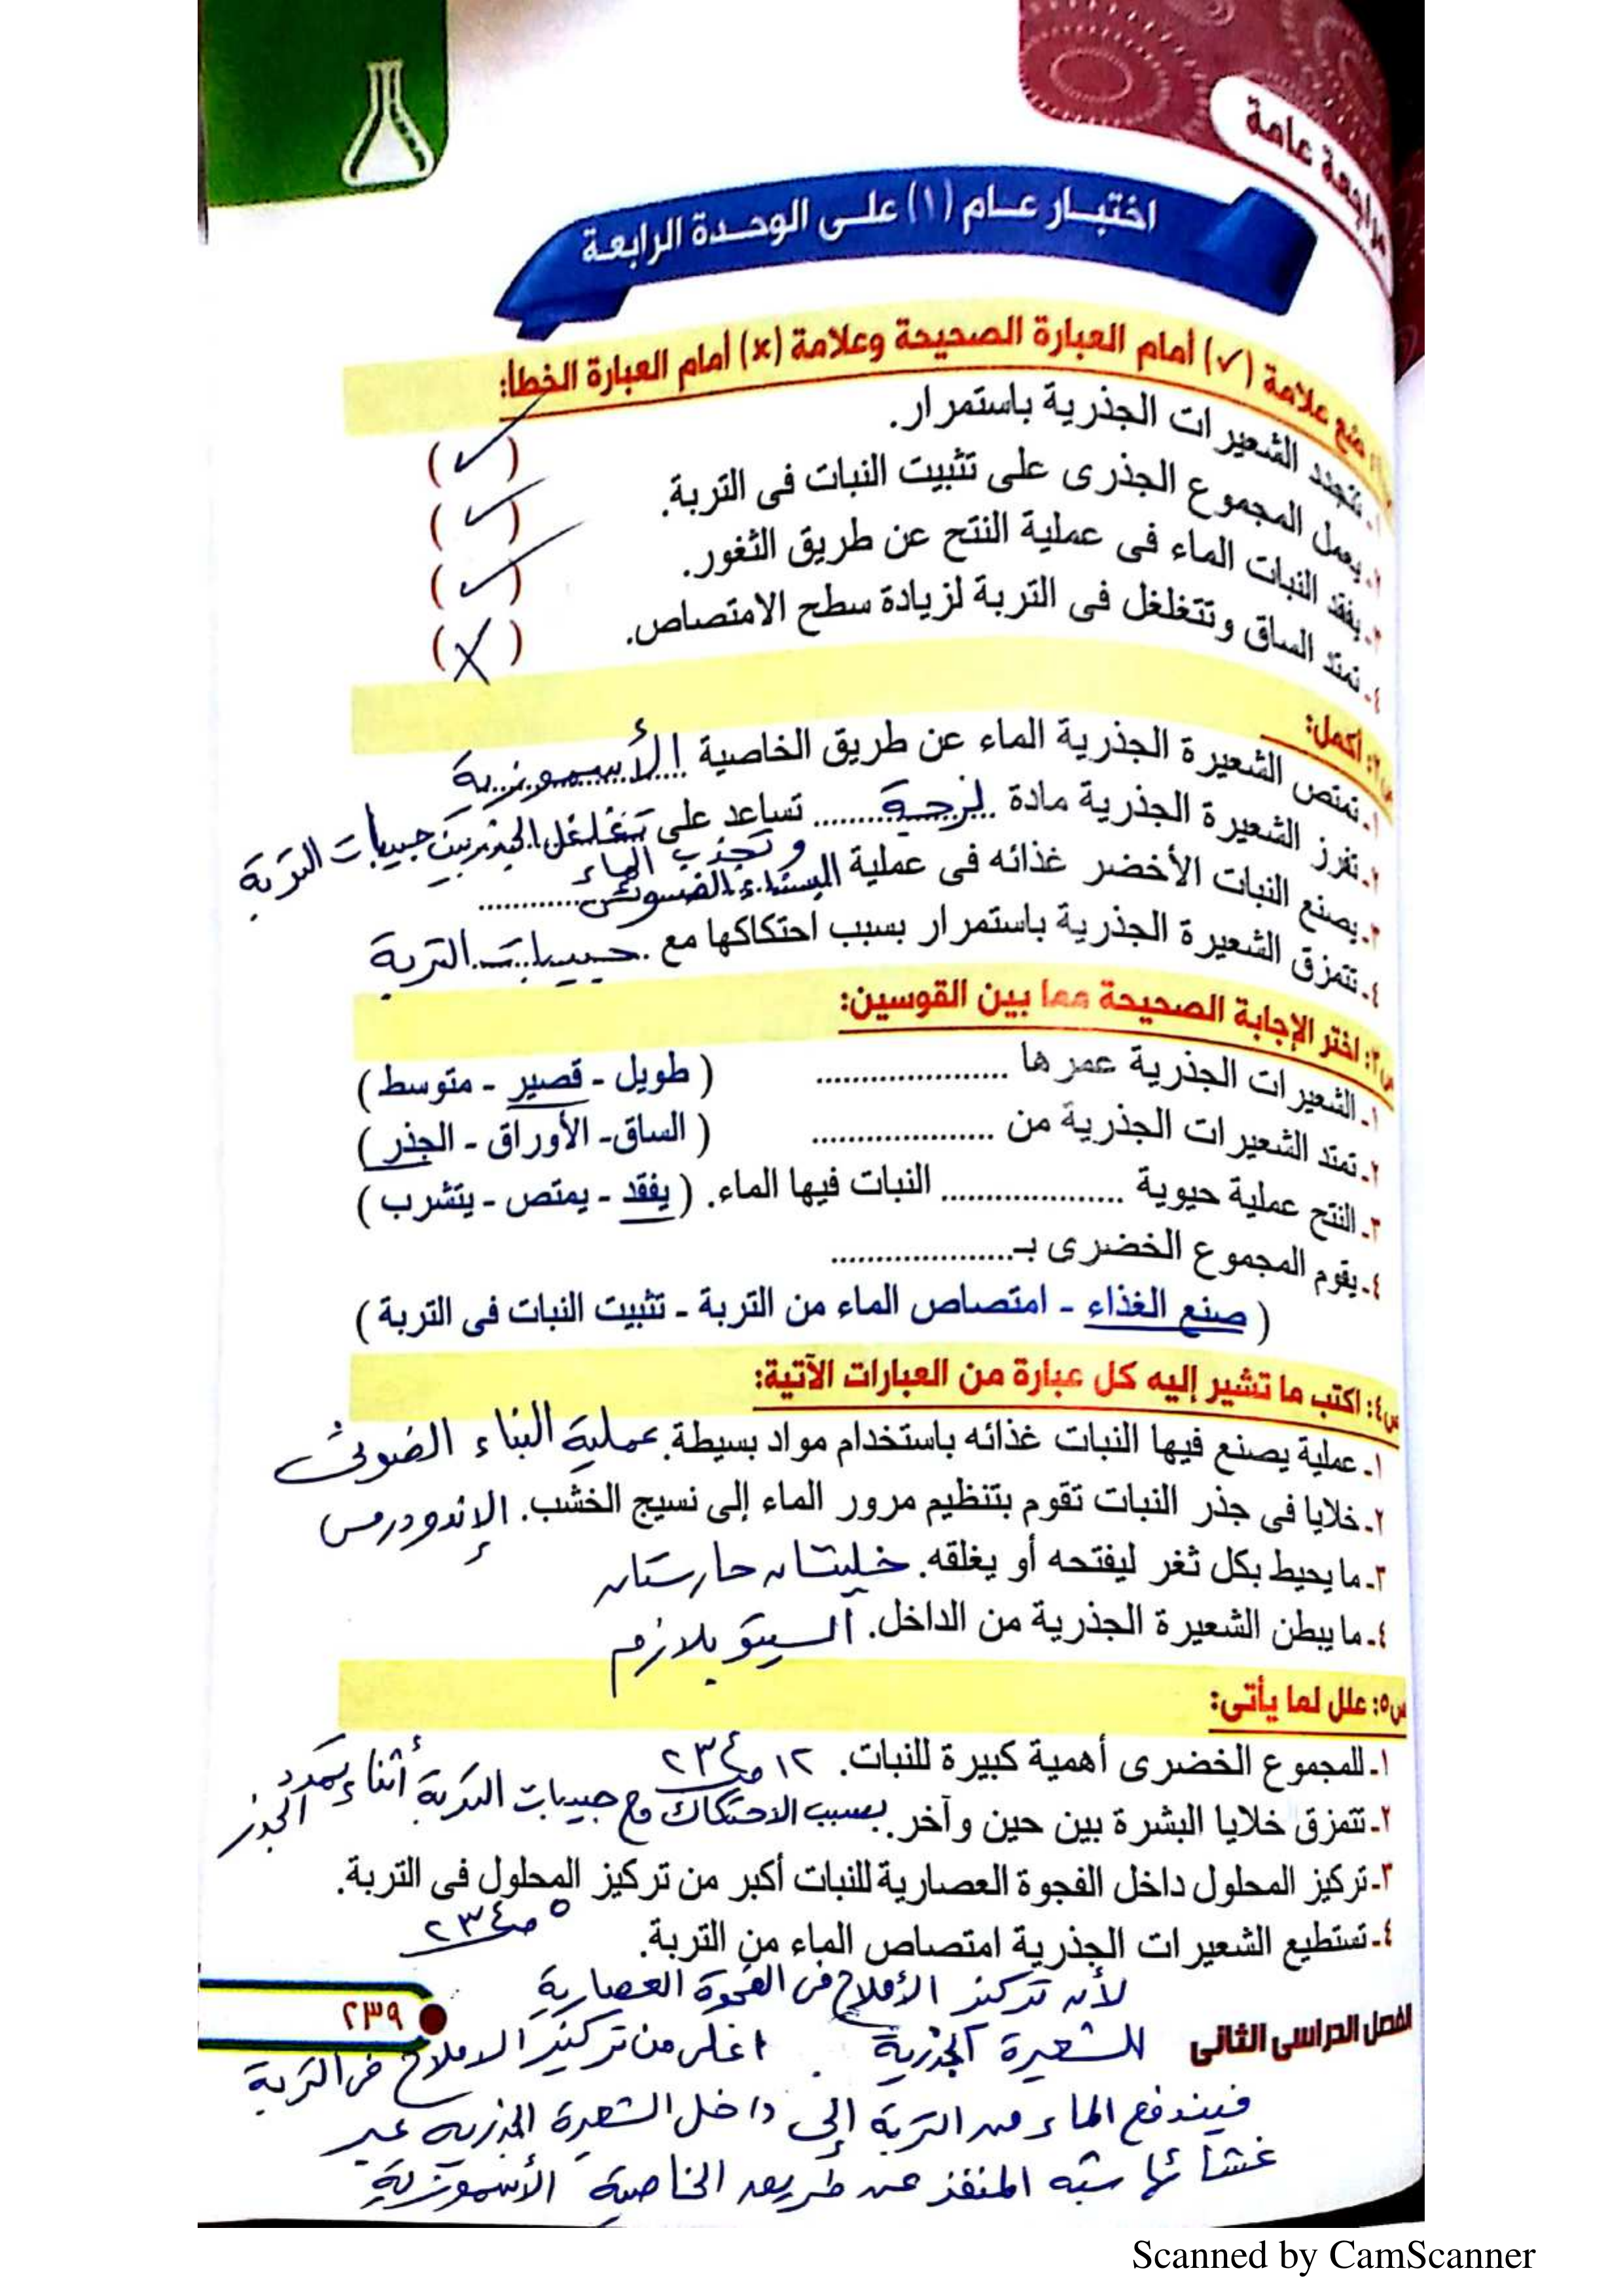 مراجعة عامة
اختبار عام (١) على الوحدة الرابعة
ضع علامة (✓) أمام العبارة الصحيحة وعلامة (×) أمام العبارة الخطأ:
١ـ تتجدد الشعيرات الجذرية باستمرار. (✓)
٢ـ يعمل المجموع الجذرى على تثبيت النبات فى التربة. (✓)
٣ـ يفقد النبات الماء فى عملية النتح عن طريق الثغور. (✓)
٤ـ تمتد الساق وتتغلغل فى التربة لزيادة سطح الامتصاص. (X)
س٢: أكمل:
١ـ تمتص الشعيرة الجذرية الماء عن طريق الخاصية الأسموزية
٢ـ تفرز الشعيرة الجذرية مادة لزجة تساعد على تغلغل الجذر بين حبيبات التربة
وتجذب الماء
٣ـ يصنع النبات الأخضر غذائه فى عملية البناء الضوئى
٤ـ تتمزق الشعيرة الجذرية باستمرار بسبب احتكاكها مع حبيبات التربة
س٣: اختر الإجابة الصحيحة مما بين القوسين:
١ـ الشعيرات الجذرية عمرها .................... ( طويل - قصير - متوسط )
٢ـ تمتد الشعيرات الجذرية من .................... ( الساق- الأوراق - الجذر )
٣ـ النتح عملية حيوية .................... النبات فيها الماء. ( يفقد - يمتص - يتشرب )
٤ـ يقوم المجموع الخضرى بـ....................
( صنع الغذاء - امتصاص الماء من التربة - تثبيت النبات فى التربة )
س٤: اكتب ما تشير إليه كل عبارة من العبارات الآتية:
١ـ عملية يصنع فيها النبات غذائه باستخدام مواد بسيطة. عملية البناء الضوئى
٢ـ خلايا فى جذر النبات تقوم بتنظيم مرور الماء إلى نسيج الخشب. الإندودرمس
٣ـ ما يحيط بكل ثغر ليفتحه أو يغلقه. خليتان حارستان
٤ـ ما يبطن الشعيرة الجذرية من الداخل. السيتوبلازم
س٥: علل لما يأتى:
١ـ للمجموع الخضرى أهمية كبيرة للنبات. ١٢ صـ ٢٣٤
٢ـ تتمزق خلايا البشرة بين حين وآخر. بسبب الاحتكاك مع حبيبات التربة أثناء تمدد الجذر
٣ـ تركيز المحلول داخل الفجوة العصارية للنبات أكبر من تركيز المحلول فى التربة.
٥ صـ ٢٣٤
٤ـ تستطيع الشعيرات الجذرية امتصاص الماء من التربة.
لأن تركيز الأملاح فى الفجوة العصارية
للشعيرة الجذرية أعلى من تركيز الاملاح فى التربة
فيندفع الماء من التربة إلى داخل الشعيرة الجذرية عبر
غشائها شبه المنفذ عن طريق الخاصية الأسموزية
الفصل الدراسى الثانى
٢٣٩
Scanned by CamScanner